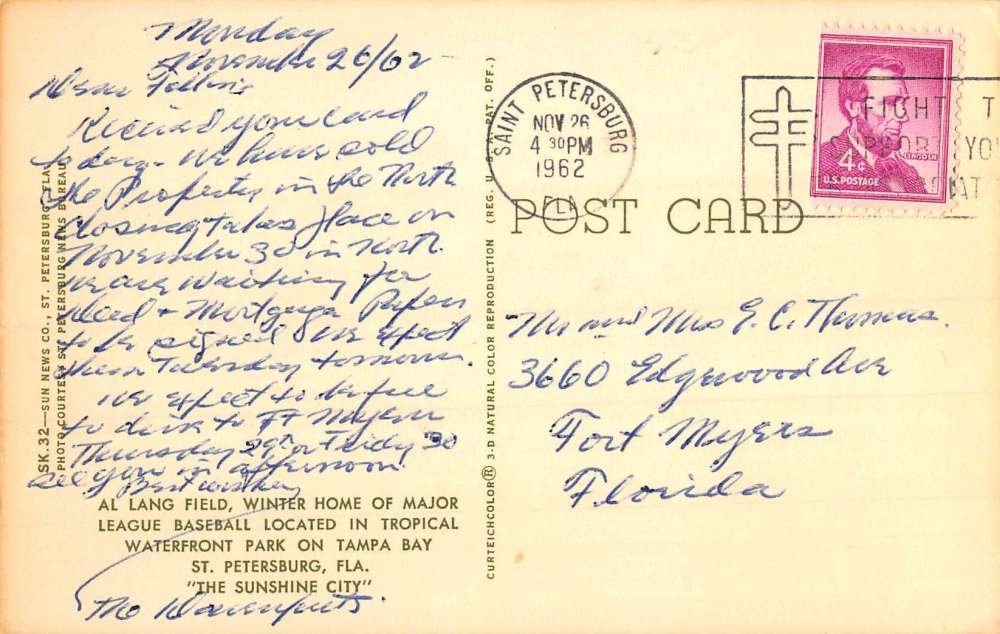 Monday
November 26/62
Dear Folks
Received your card
today - we have sold
the Property in the North
closing takes place on
November 30 in North.
we are waiting for
deed + Mortgage Papers
to be signed we expect
them Tuesday tomorrow.
we expect to be free
to drive to FT Myers
Thursday 29th or Friday 30
see you in afternoon.
Best wishes
The Davenports.
AL LANG FIELD, WINTER HOME OF MAJOR
LEAGUE BASEBALL LOCATED IN TROPICAL
WATERFRONT PARK ON TAMPA BAY
ST. PETERSBURG, FLA.
"THE SUNSHINE CITY"
SK.32—SUN NEWS CO., ST. PETERSBURG, FLA.
PHOTO COURTESY ST. PETERSBURG NEWS BUREAU
CURTEICHCOLOR® 3-D NATURAL COLOR REPRODUCTION (REG. U. S. PAT. OFF.)
SAINT PETERSBURG
NOV 26
4 30 PM
1962
FLA
POST CARD
FIGHT T
YO
4¢
LINCOLN
U.S. POSTAGE
Mr and Mrs E. C. Thomas.
3660 Edgewood Ave
Fort Myers
Florida